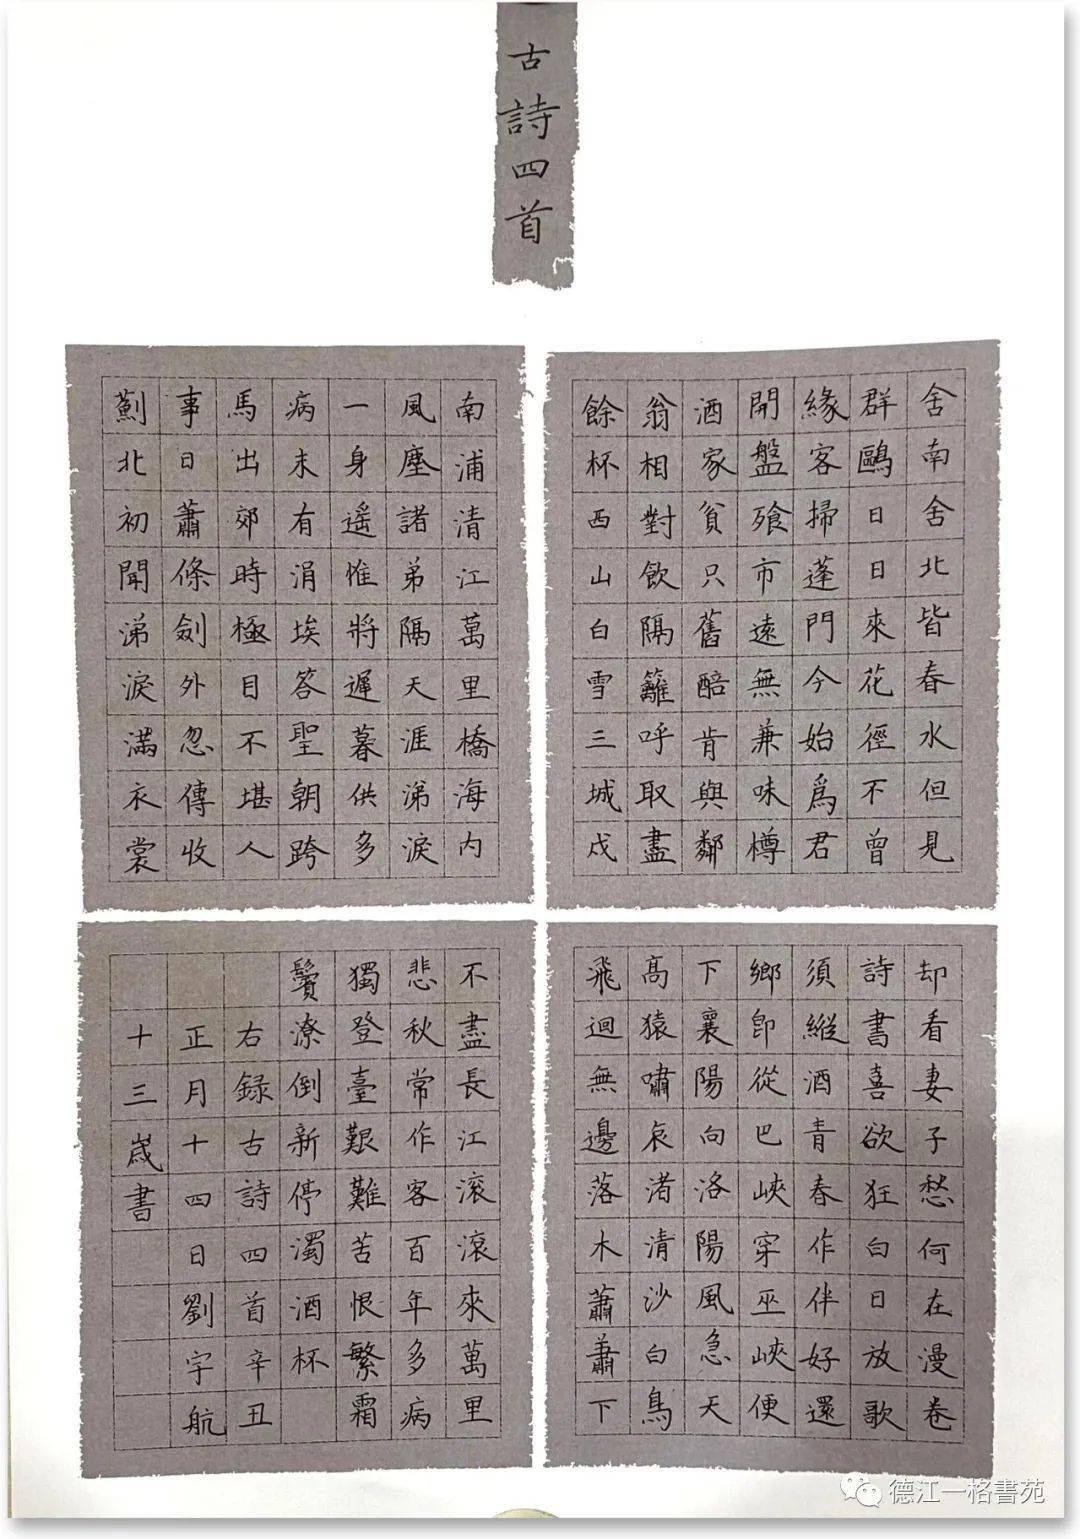 古詩四首
舍南舍北皆春水但見
群鷗日日來花徑不曾
緣客掃蓬門今始爲君
開盤飱市遠無兼味樽
酒家貧只舊醅肯與鄰
翁相對飲隔籬呼取盡
餘杯西山白雪三城戍
南浦清江萬里橋海内
風塵諸弟隔天涯涕淚
一身遥惟將遲暮供多
病未有涓埃答聖朝跨
馬出郊時極目不堪人
事日蕭條劍外忽傳收
薊北初聞涕淚滿衣裳
却看妻子愁何在漫卷
詩書喜欲狂白日放歌
須縱酒青春作伴好還
鄉即從巴峽穿巫峽便
下襄陽向洛陽風急天
高猿嘯哀渚清沙白鳥
飛迴無邊落木蕭蕭下
不盡長江滾滾來萬里
悲秋常作客百年多病
獨登臺艱難苦恨繁霜
鬢潦倒新停濁酒杯
右録古詩四首辛丑
正月十四日劉宇航
十三歲書
德江一格書苑